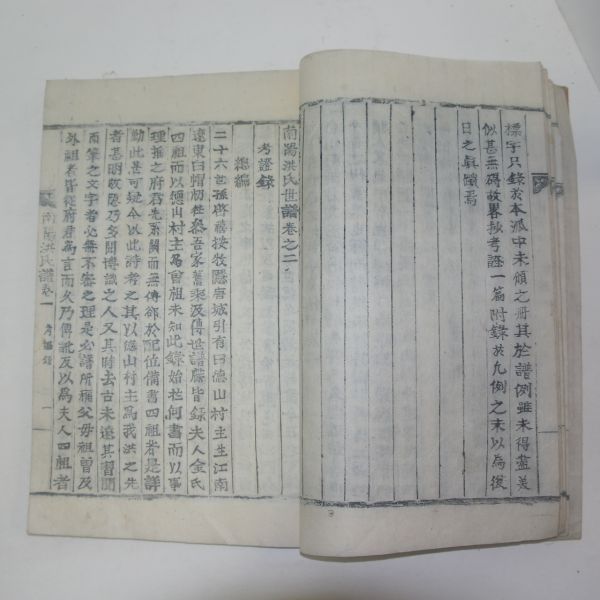 標字只錄於本派中未頒之冊其於譜例雖未得盡美
似甚無碍故畧抄考證一篇附錄於凡例之末以為後
日之眞贋焉
南陽洪氏世譜卷之二
考證錄
總編
二十六世孫啓禧按牧隱唐城引有曰德山村主生江南
遼東白帽初在泰吾家舊乘及傳世譜牒皆錄夫人金氏
四祖而以德山村主為曾祖未知此錄始於何書而以事
理推之府君先系闕而無傳郤於配位備書四祖者是詳
勘此甚可疑今以此詩考之其以德山村主為我洪之先
者甚明牧隱乃多聞博識之人又其時去古未遠其習聞
而筆之文字者必無不審之理是必譜所稱父母祖曾及
外祖者皆從府君為言而久乃傳訛反以為夫人四祖者
南陽洪氏譜卷一 考證錄 一